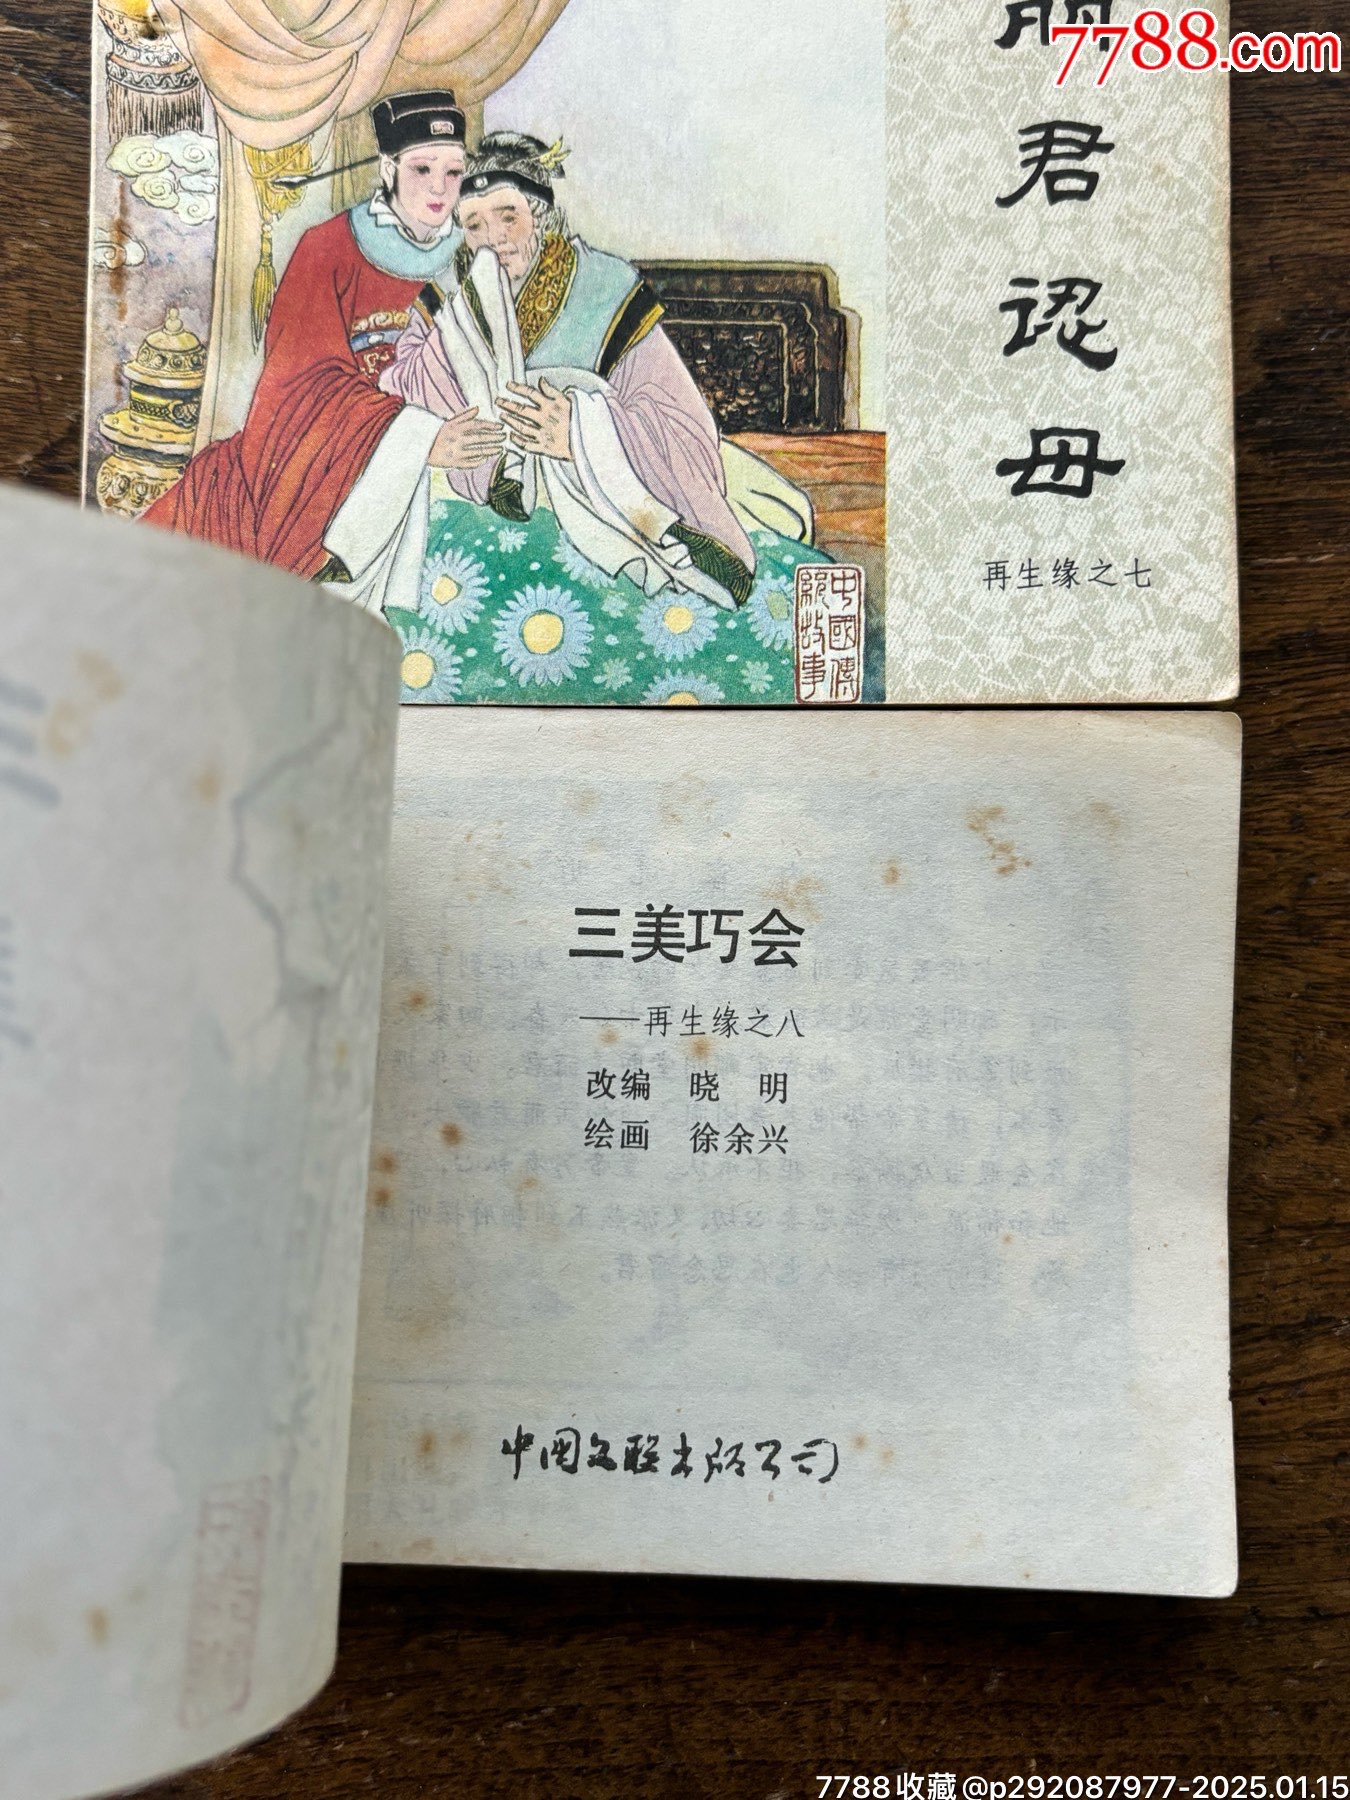 7788.com
丽君认母
再生缘之七
中國傳統故事
三美巧会
——再生缘之八
改编 晓 明
绘画 徐余兴
中国文联出版公司
7788收藏@p292087977-2025.01.15